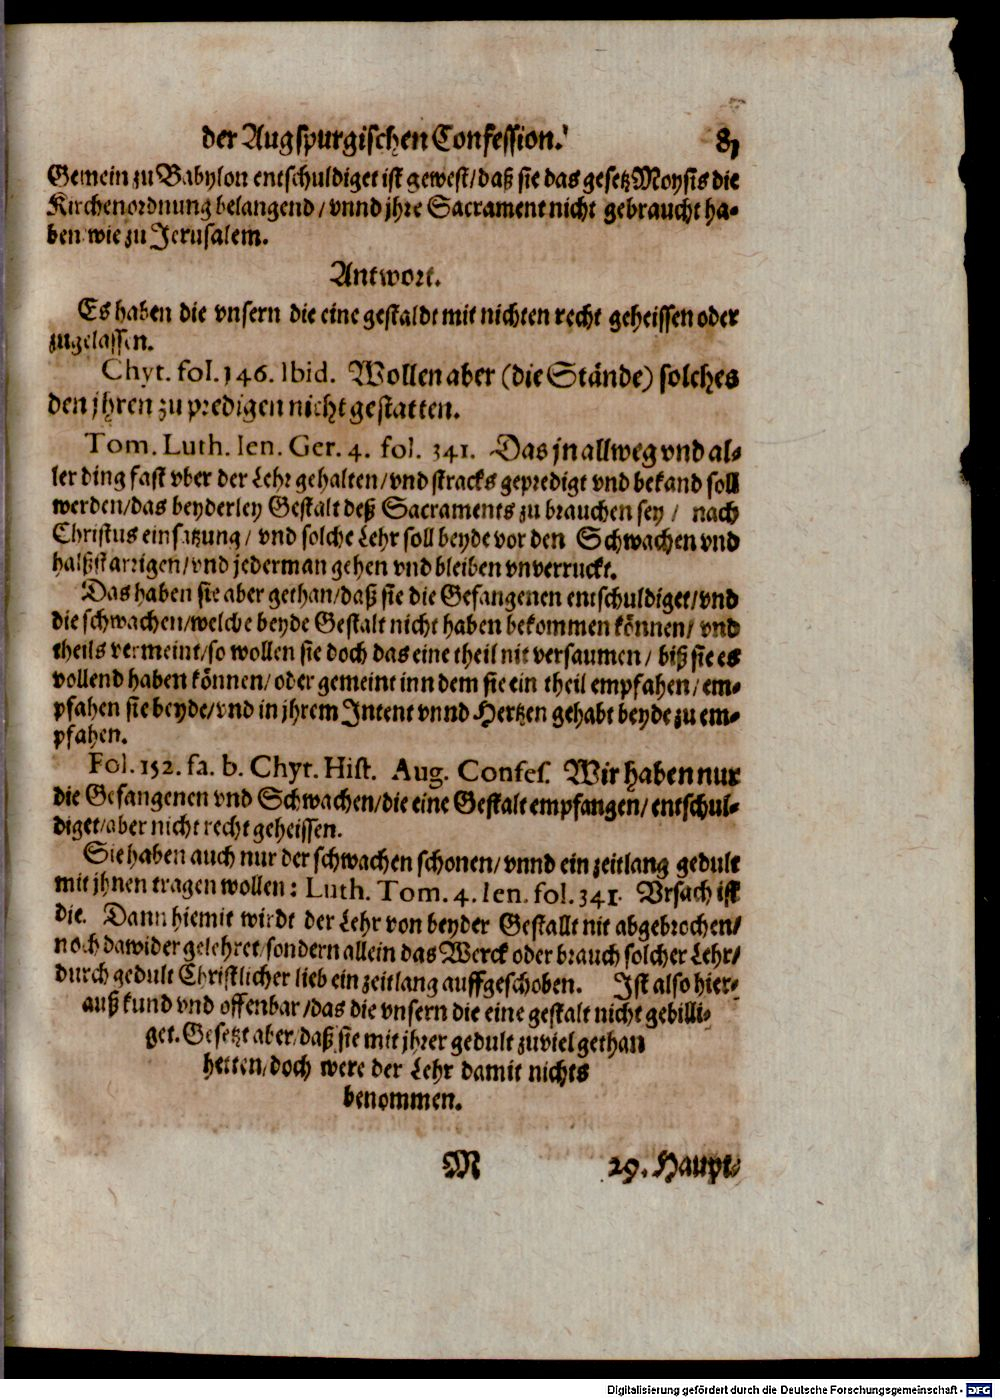 der Augspurgischen Confession.
Gemein zu Babylon entschuldiget ist gewest/daß sie das gesetz Moysis die
Kirchenordnung belangend/vnnd jhre Sacrament nicht gebraucht ha-
ben wie zu Jerusalem.
Antwort.
Es haben die vnsern die eine gestaldt mit nichten recht geheissen oder
zugelassen.
Chyt. fol. 146. Ibid. Wollen aber (die Stände) solches
den jhren zu predigen nicht gestatten.
Tom. Luth. Ien. Ger. 4. fol. 341. Das jn allweg vnd al-
ler ding fast vber der Lehr gehalten/vnd stracks gepredigt vnd bekand soll
werden/das beyderley Gestalt deß Sacraments zu brauchen sey/ nach
Christus einsatzung/ vnd solche Lehr soll beyde vor den Schwachen vnd
halßstarrigen/vnd jederman gehen vnd bleiben vnverruckt.
Das haben sie aber gethan/daß sie die Gefangenen entschuldiget/vnd
die schwachen/welche beyde Gestalt nicht haben bekommen können/ vnd
theils vermeint/so wollen sie doch das eine theil nit versaumen/ biß sie es
vollend haben können/oder gemeint inn dem sie ein theil empfahen/em-
pfahen sie beyde/vnd in jhrem Intent vnnd Hertzen gehabt beyde zu em-
pfahen.
Fol. 152. fa. b. Chyt. Hist. Aug. Confes. Wir haben nur
die Gefangenen vnd Schwachen/die eine Gestalt empfangen/entschul-
diget/aber nicht recht geheissen.
Sie haben auch nur der schwachen schonen/vnnd ein zeitlang gedult
mit jhnen tragen wollen: Luth. Tom. 4. Ien. fol. 341. Vrsach ist
die. Dann hiemit wirdt der Lehr von beyder Gestallt nit abgebrochen/
noch dawider gelehret/sondern allein das Werck oder brauch solcher Lehr/
durch gedult Christlicher lieb ein zeitlang auffgeschoben. Ist also hier-
auß kund vnd offenbar/das die vnsern die eine gestalt nicht gebilli-
get. Gesetzt aber/daß sie mit jhrer gedult zuviel gethan
hetten/doch were der Lehr damit nichts
benommen.
M 29. Haupt-
Digitalisierung gefördert durch die Deutsche Forschungsgemeinschaft - DFG